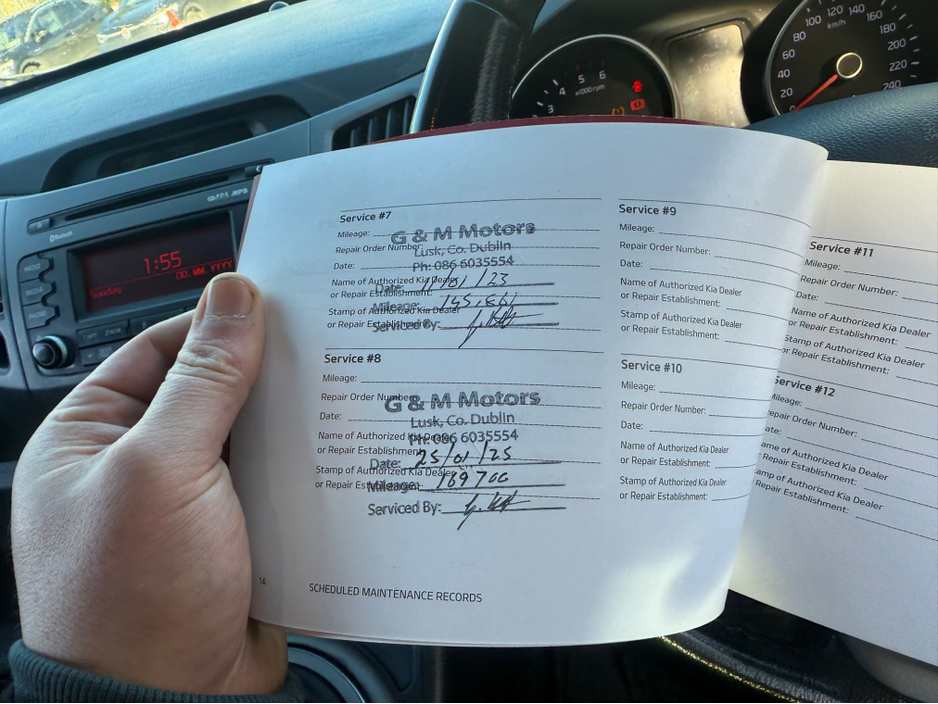 100 120 140 160
km/h
80
180
60
200
40
220
20
240
3 4 5 6
x1000 rpm
Bluetooth
RADIO
MEDIA
PHONE
1:55
Sunday
Service #7
Mileage:
Repair Order Number:
Date:
Name of Authorized Kia Dealer
or Repair Establishment:
Stamp of Authorized Kia Dealer
or Repair Establishment:
G & M Motors
Lusk, Co. Dublin
Ph: 086 6035554
Date: /01/23
Mileage:
Serviced By:
Service #8
Mileage:
Repair Order Number:
Date:
Name of Authorized Kia Dealer
or Repair Establishment:
Stamp of Authorized Kia Dealer
or Repair Establishment:
G & M Motors
Lusk, Co. Dublin
Ph: 086 6035554
Date: 25/01/25
Mileage: 169700
Serviced By:
14
SCHEDULED MAINTENANCE RECORDS
Service #9
Mileage:
Repair Order Number:
Date:
Name of Authorized Kia Dealer
or Repair Establishment:
Stamp of Authorized Kia Dealer
or Repair Establishment:
Service #10
Mileage:
Repair Order Number:
Date:
Name of Authorized Kia Dealer
or Repair Establishment:
Stamp of Authorized Kia Dealer
or Repair Establishment:
Service #11
Mileage:
Repair Order Number:
Date:
Name of Authorized Kia Dealer
or Repair Establishment:
Stamp of Authorized Kia Dealer
or Repair Establishment:
Service #12
Mileage:
Repair Order Number:
Date:
Name of Authorized Kia Dealer
or Repair Establishment:
Stamp of Authorized Kia Dealer
Repair Establishment: